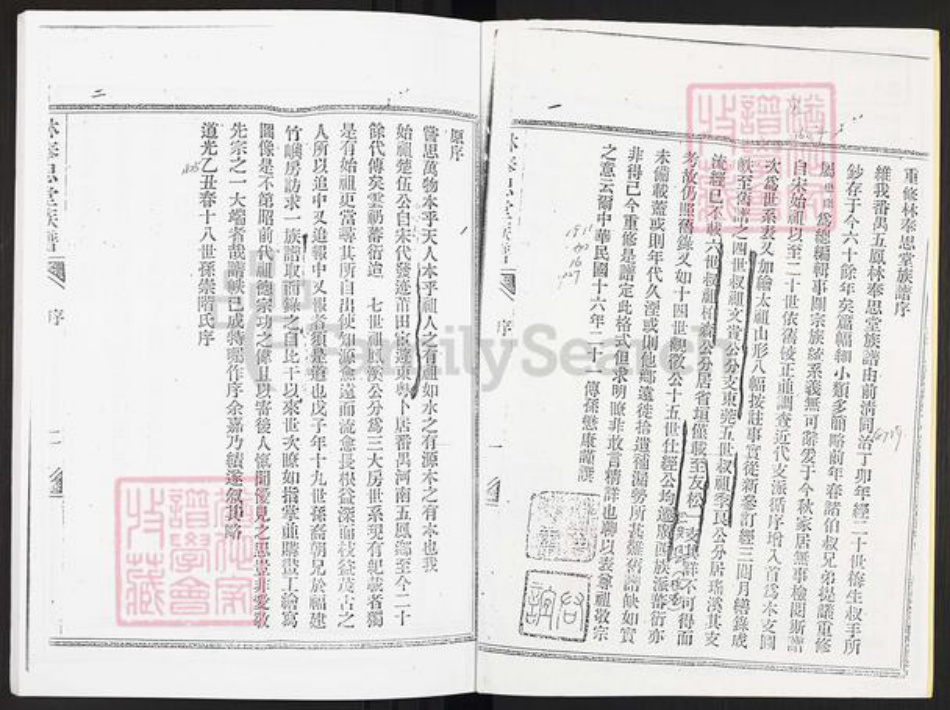 重修林奉思堂族譜序
維我番禺五鳳林奉思堂族譜由前清同治丁卯年經二十世梅生叔手所
鈔存于今六十餘年矣篇幅細小類多簡略前年春諾伯叔兄弟提議重修
為總編輯事關宗族統系義無可辭爰于今秋家居無事檢閱斯譜
自宋始祖以至二十世依舊校正並調查近代支派循序增入首為本支圖
次為世系表又加繪太祖山形八幅按註事實從新參訂經三閱月總錄成
帙至舊譜之四世叔祖文賞公分支東莞五世叔祖季良公分居瑤溪其支
流經已不載六世叔祖柏 公分居省垣僅載至友松 之 詳不可得而
考故仍照舊錄又如十四世 徵公十五世仕經公均遷廣西其族派蕃衍亦
未備載蓋或則年代久湮或則他鄉遠徙拾遺補漏勢所甚難舊譜缺如實
非得已今重修是譜定此格式但求明瞭非敢言精詳也聊以表尊祖敬宗
之意云爾中華民國十六年二十一傳孫懋康謹譔
一
林奉思堂族譜
序
一
二
原序
嘗思萬物本乎天人本乎祖人之有祖如水之有源木之有本也我
始祖楚伍公自宋代發迹莆田宦遊東粵卜居番禺河南五鳳鄉至今二十
餘代傳矣雲礽蕃衍遞 七世祖鳳溪公分為三大房世系現有紀載者獨
是有始祖更當尋其所自出使知源愈遠而流愈長根益深而枝益茂古之
人所以追中又追報中又報者須是道也戊子年十九世孫喬朝兄於福建
竹嶼房訪求一族譜取而錄之自比干以來世次瞭如指掌並購畫工繪為
圖像是不第昭前代祖德宗功之偉且以書後人愾聞優見之思豈非愛敬
先宗之一大端者哉譜帙已成特囑作序余嘉乃績遂叙其略
道光乙丑春十八世孫崇階氏序
林奉思堂族譜
序
二
FamilySearch
譜學會
收藏